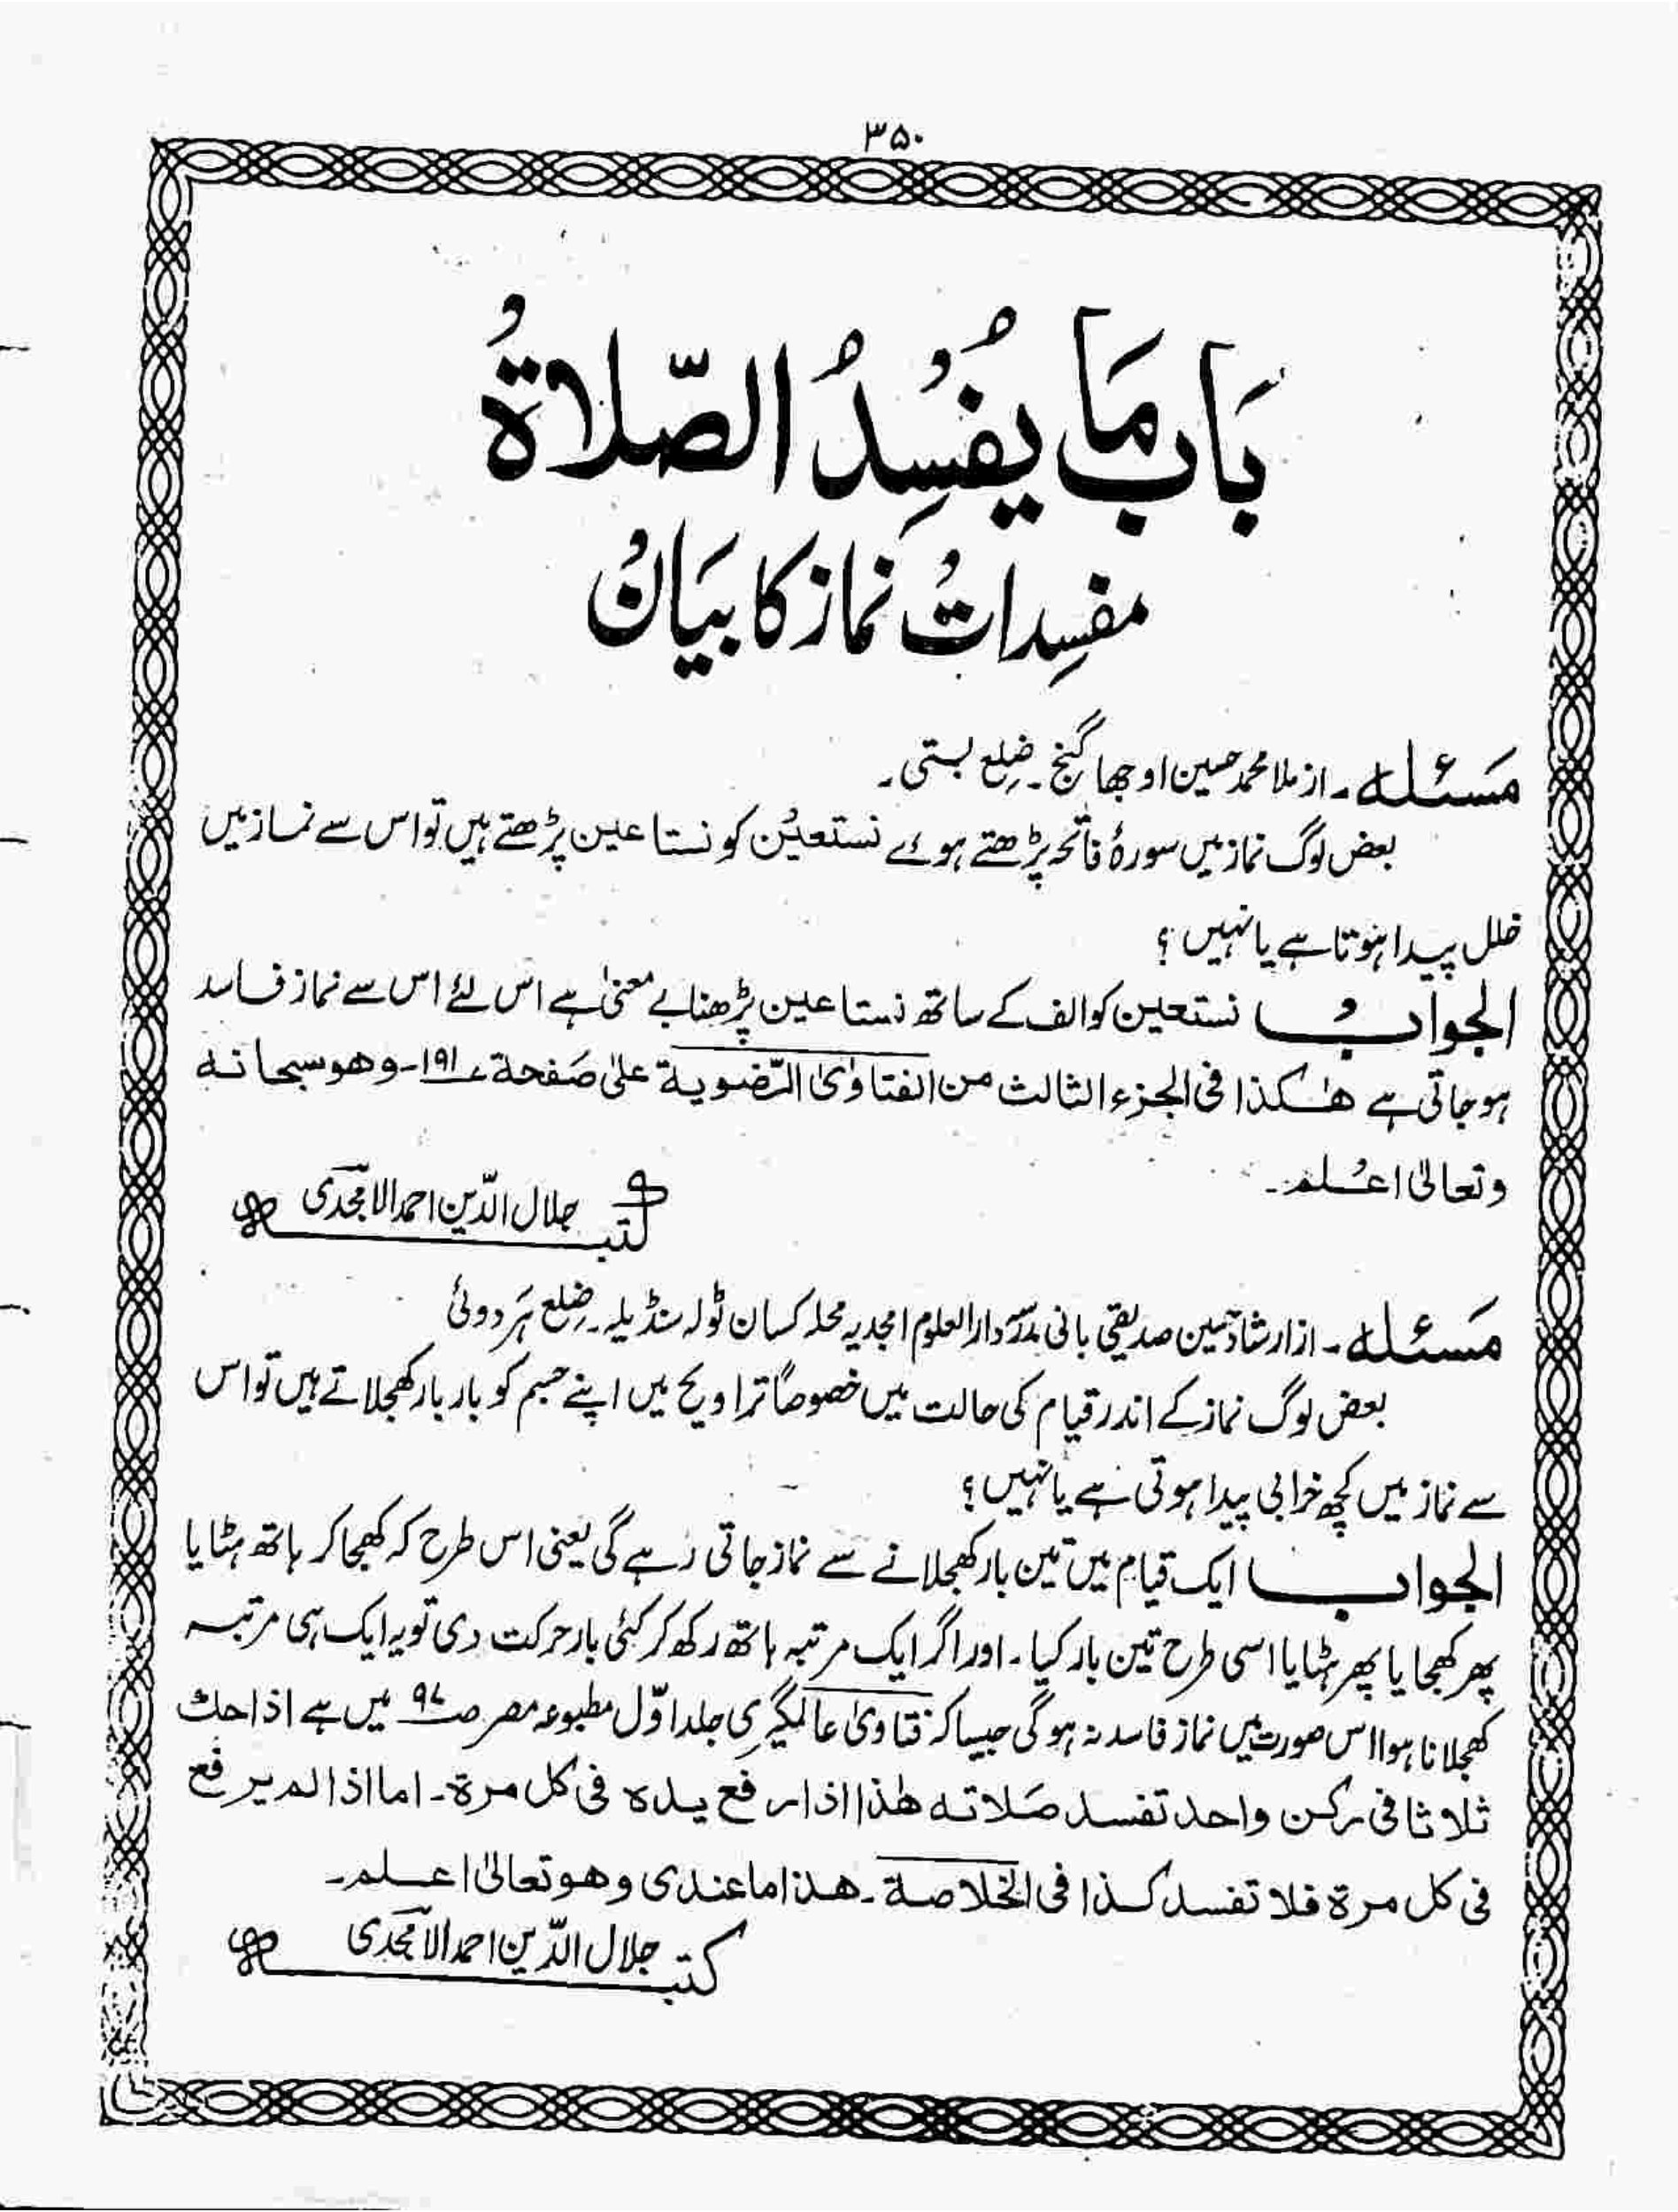 ۳۵۰
بَابُ مَا یُفْسِدُ الصَّلَاۃُ
مفسِداتُ نماز کا بیَانُ
مَسْئلہ۔ از ملا محمد حسین اوجھا گنج۔ ضِلع بستی۔
بعض لوگ نماز میں سورۂ فاتحہ پڑھتے ہوئے نستعیْن کو نستاعین پڑھتے ہیں تو اس سے نماز میں
خلل پیدا ہوتا ہے یا نہیں؟
الجواب نستعین کو الف کے ساتھ نستاعین پڑھنا بے معنیٰ ہے اس لئے اس سے نماز فاسد
ہوجاتی ہے ھٰکذا فی الجزء الثالث من الفتاویٰ الرّضویۃ علیٰ صَفحۃ ۱۹۱۔ وھو سبحانہ
وتعالیٰ اعْلم۔
کتبہ جلال الدّین احمد الامجدی
مَسْئلہ۔ از ارشاد حسین صدیقی بانی مدرسہ دارالعلوم امجدیہ محلہ کسان ٹولہ سنڈیلہ۔ ضِلع ہَردوئی
بعض لوگ نماز کے اندر قیام کی حالت میں خصوصاً تراویح میں اپنے جسم کو بار بار کھجلاتے ہیں تو اس
سے نماز میں کچھ خرابی پیدا ہوتی ہے یا نہیں؟
الجواب ایک قیام میں تین بار کھجلانے سے نماز جاتی رہے گی یعنی اس طرح کہ کھجا کر ہاتھ ہٹایا
پھر کھجایا پھر ہٹایا اسی طرح تین بار کیا۔ اور اگر ایک مرتبہ ہاتھ رکھ کر کئی بار حرکت دی تو یہ ایک ہی مرتبہ
کھجلانا ہوا اس صورت میں نماز فاسد نہ ہوگی جیسا کہ فتاویٰ عالمگیری جلد اوّل مطبوعہ مصر صـ ۹۷ میں ہے اذا حك
ثلاثا فی رکن واحد تفسد صَلاتہ ھٰذا اذا رفع یدہ فی کل مرۃ۔ اما اذا لم یرفع
فی کل مرۃ فلا تفسد کذا فی الخلاصۃ۔ ھذا ما عندی وھو تعالیٰ اعلم۔
کتبہ جلال الدّین احمد الامجدی